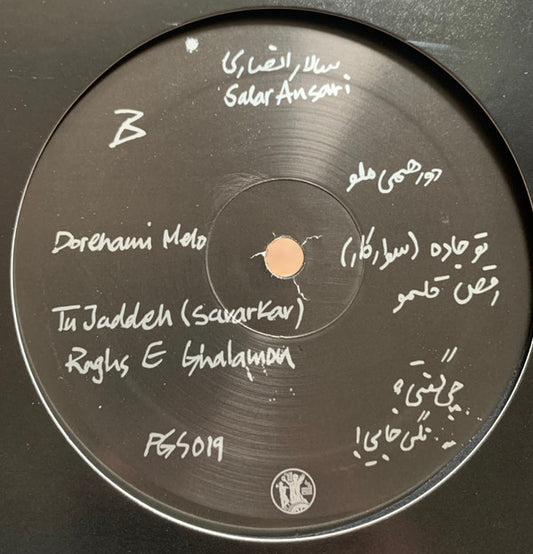 سالار انصاری
Salar Ansari
B
دورهمی ملو
Dorehami Melo
تو جاده (سوارکار)
Tu Jaddeh (Savarkar)
رقص قلمو
Raghs E Ghalamou
چی گفتی؟
نگی جایی!
PGS019